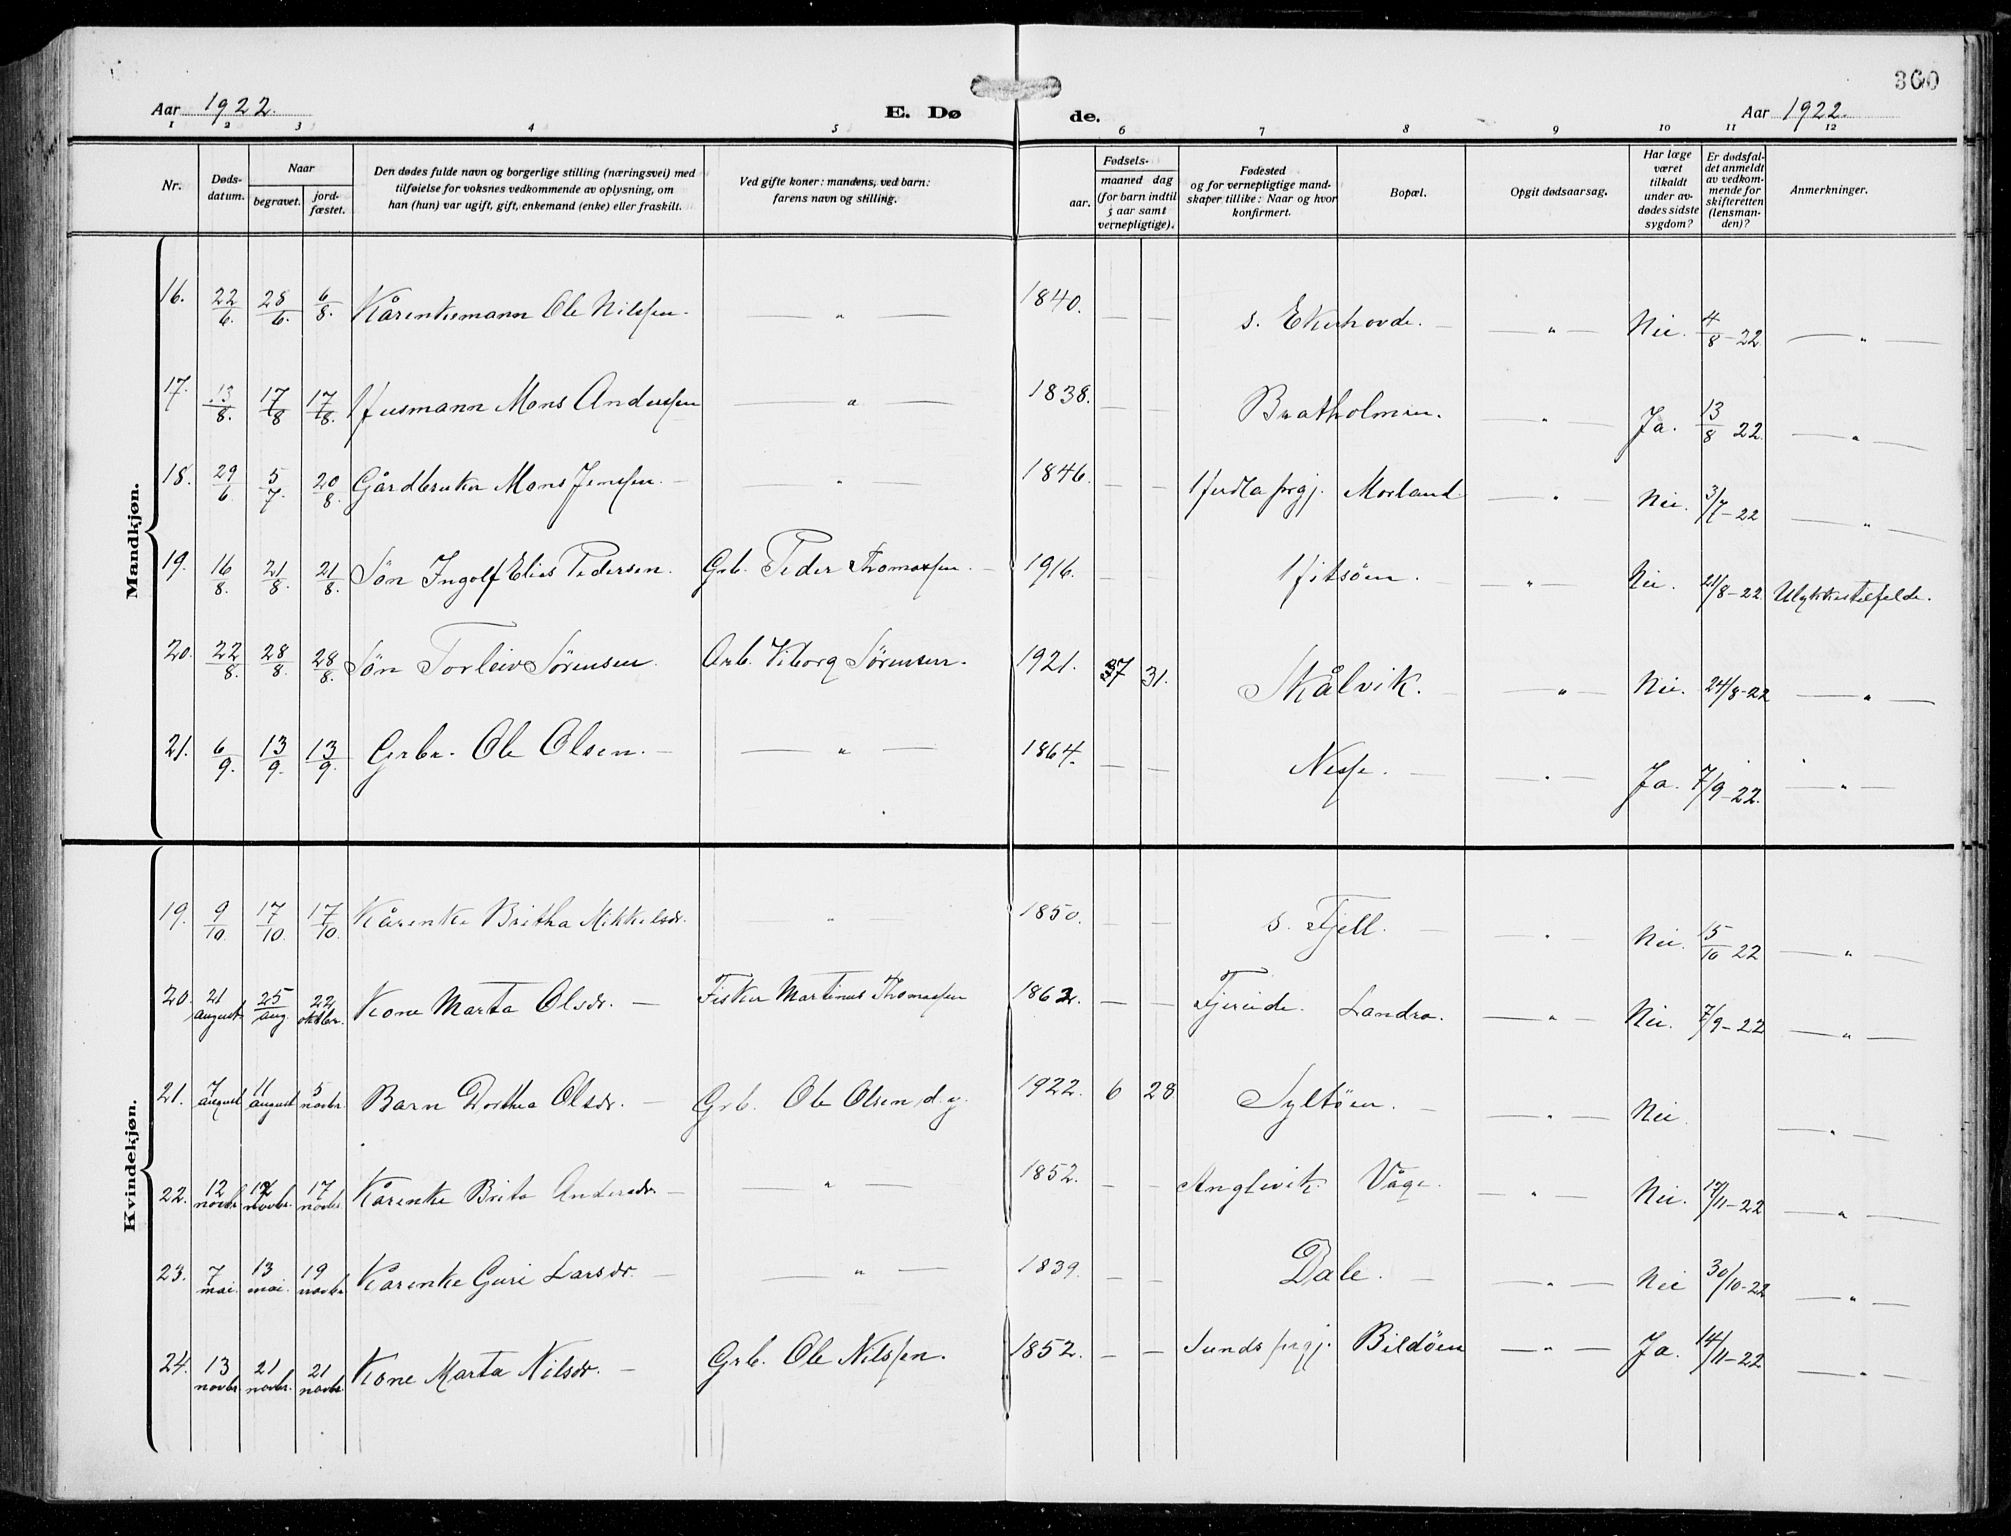 360
Aar 1922. E. Dø de. Aar 1922.
1 2 3 4 5 6 7 8 9 10 11 12
Nr.
Døds-
datum.
Naar
begravet.
jord-
fæstet.
Den dødes fulde navn og borgerlige stilling (næringsvei) med
tilføielse for voksnes vedkommende av oplysning, om
han (hun) var ugift, gift, enkemand (enke) eller fraskilt.
Ved gifte koner: mandens, ved barn:
farens navn og stilling.
Fødsels-
aar.
maaned dag
(for barn indtil
5 aar samt
vernepligtige).
Fødested
og for vernepligtige mand-
skaper tillike: Naar og hvor
konfirmert.
Bopæl.
Opgit dødsaarsag.
Har læge
været
tilkaldt
under av-
dødes sidste
sygdom?
Er dødsfal-
det anmeldt
av vedkom-
mende for
skifteretten
(lensman-
den)?
Anmerkninger.
Mandkjøn.
16. 22/6. 28/6. 6/8. Kårenkemann Ole Nilssen. — " — 1840. — — s. Ekerhovde. — — " — Nei. 4/8 - 22 — " —
17. 13/8. 17/8 17/8. Husmann Mons Anderssen — " — 1838. — — Bratholmen. — " — Ja. 13/8 22. — " —
18. 29/6 5/7. 20/8. Gårdbruker Mons Jenssen. — — " — 1846. — — Herdla prgj. Morland — " — Nei. 3/7 - 22 — " —
19. 16/8. 21/8. 21/8. Søn Ingolf Elias Pedersen. Grb. Peder Thomassen. — 1916. — Hitsøen. — — " — Nei. 21/8 - 22 Ulykkestilfelde.
20. 22/8. 28/8. 28/8. Søn Torleiv Sørensen. Arb. Viborg Sørensen. 1921. 7 31. Skålvik. — — " — Nei. 24/8 - 22 — " —
21. 6/9. 13/9. 13/9. Grbr. Ole Olsen. — — " — 1864. — — Nesse. — — " — Ja. 7/9 - 22. — " —
Kvindekjøn.
19. 9/10. 17/10. 17/10. Kårenke Britha Mikkelsdr. — " — 1850. — — s. Fjell. — — " — Nei. 15/10 22 — " —
20. 21 august 25 aug. 22 oktbr. Kone Marta Olsdr. — Fisker Martinus Thomassen 1862. — — Tjereide. Landro. — " — Nei. 7/9 - 22 — " —
21. 7 august 11 august 5 novbr. Barn Dorthea Olsdr. — Grb. Ole Olsen d.y. 1922. 6 28 Syltøen. — — " — Nei — " —
22. 12 novbr 17 novbr. 17 novbr Kårenke Brita Andersdr. — — " — 1852. — — Anglevik. Våge. — " — Nei. 17/11 - 22 — " —
23. 7 mai. 13 mai. 19 novbr. Kårenke Guri Larsdr. — — " — 1839. — — Dale. — — " — Nei 30/10 - 22 — " —
24. 13 novbr. 21 novbr. 21 novbr. Kone Marta Nilsdr. — Grb. Ole Nilssen. 1852. — — Sunds prgj. Bildøen — " — Ja. 14/11 - 22 — " —